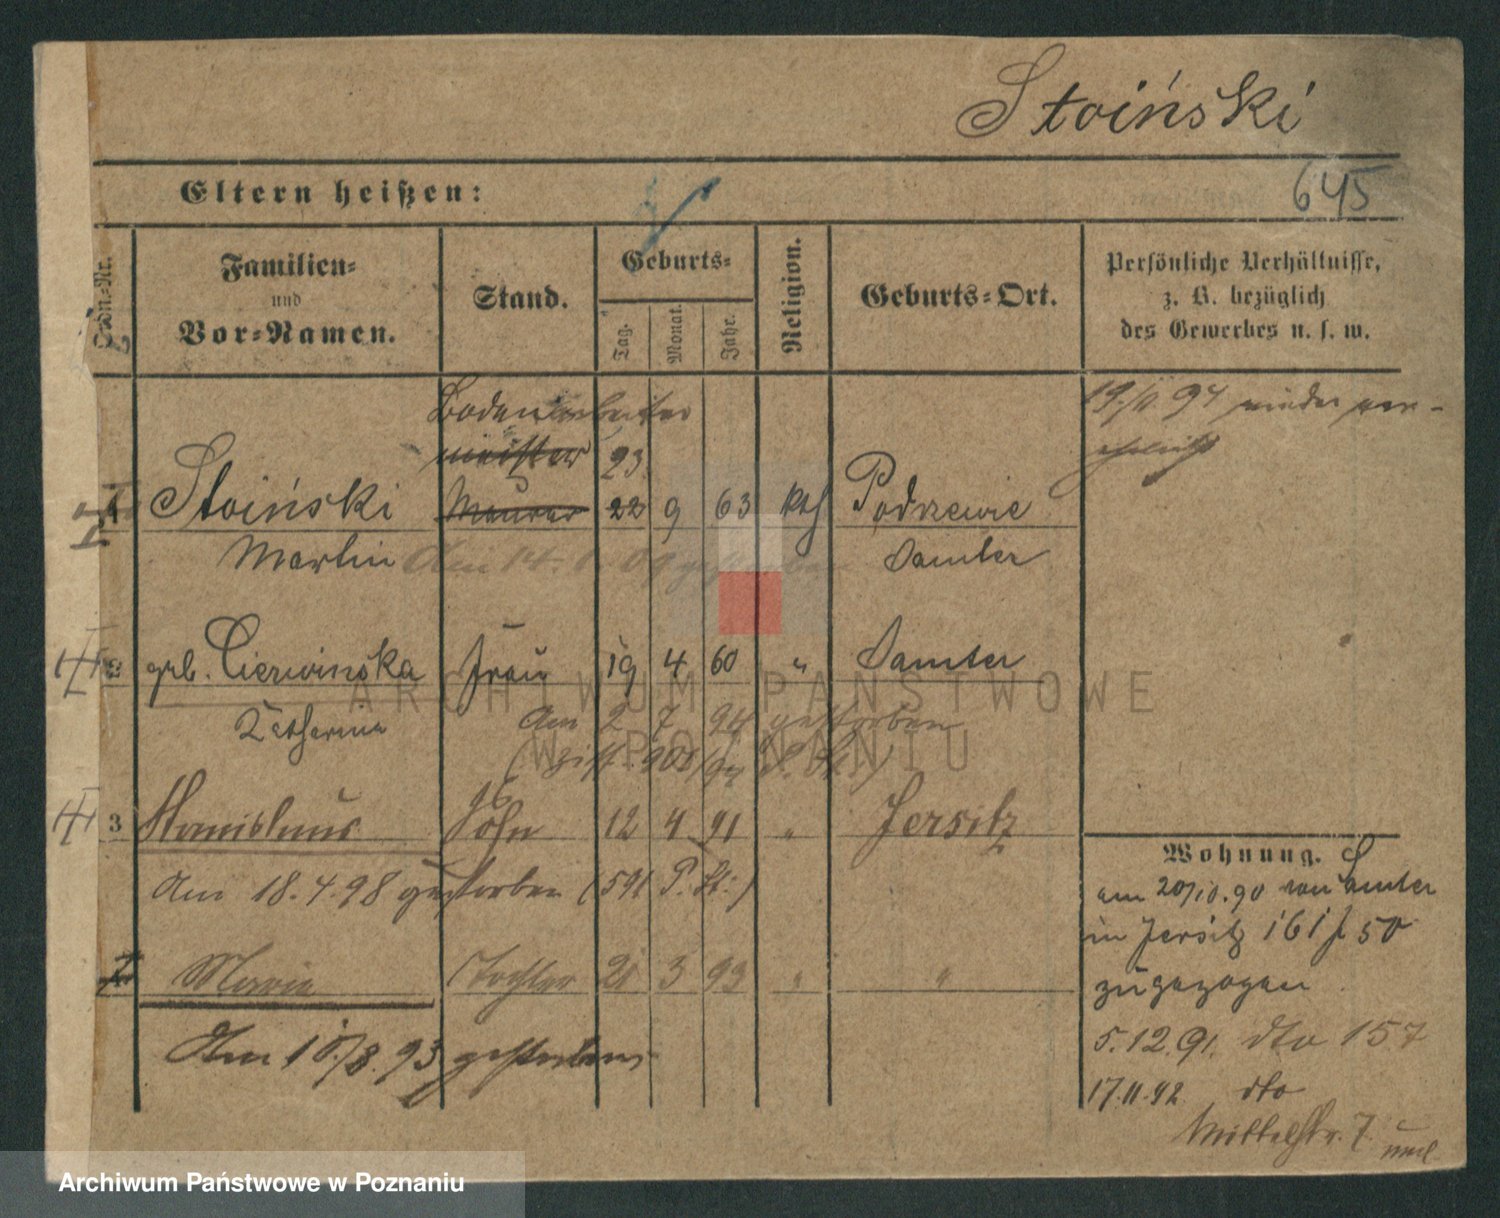 Stoiński
Eltern heißen:
645
Ordn.-Nr.
Familien-
und
Vor-Namen.
Stand.
Geburts-
Tag.
Monat.
Jahr.
Religion.
Geburts-Ort.
Persönliche Verhältnisse,
z. B. bezüglich
des Gewerbes u. s. w.
Bodenarbeiter
19./11. 94 wieder ver-
ehelicht
23.
1 Stoiński Maurer 22 9 63 kth Podrzewie
Martin Am 14. 09 gestorben Samter
2 geb. Cierwinska Frau 19 4 60 " Samter
Katharina Am 2 7 94 gestorben
3 Stanislaus Sohn 12 4 91 " Jersitz
Am 18.4.98 gestorben (591 P. St.)
Wohnung.
am 20/10.90 von Samter
in Jersitz 161 f 50
zugezogen
Maria Tochter 21 3 93 " "
Am 10./8. 93 gestorben
5.12.91. dto 157
17.11.92 dto
Mittelstr. 7.
ARCHIWUM PAŃSTWOWE
W POZNANIU
Archiwum Państwowe w Poznaniu